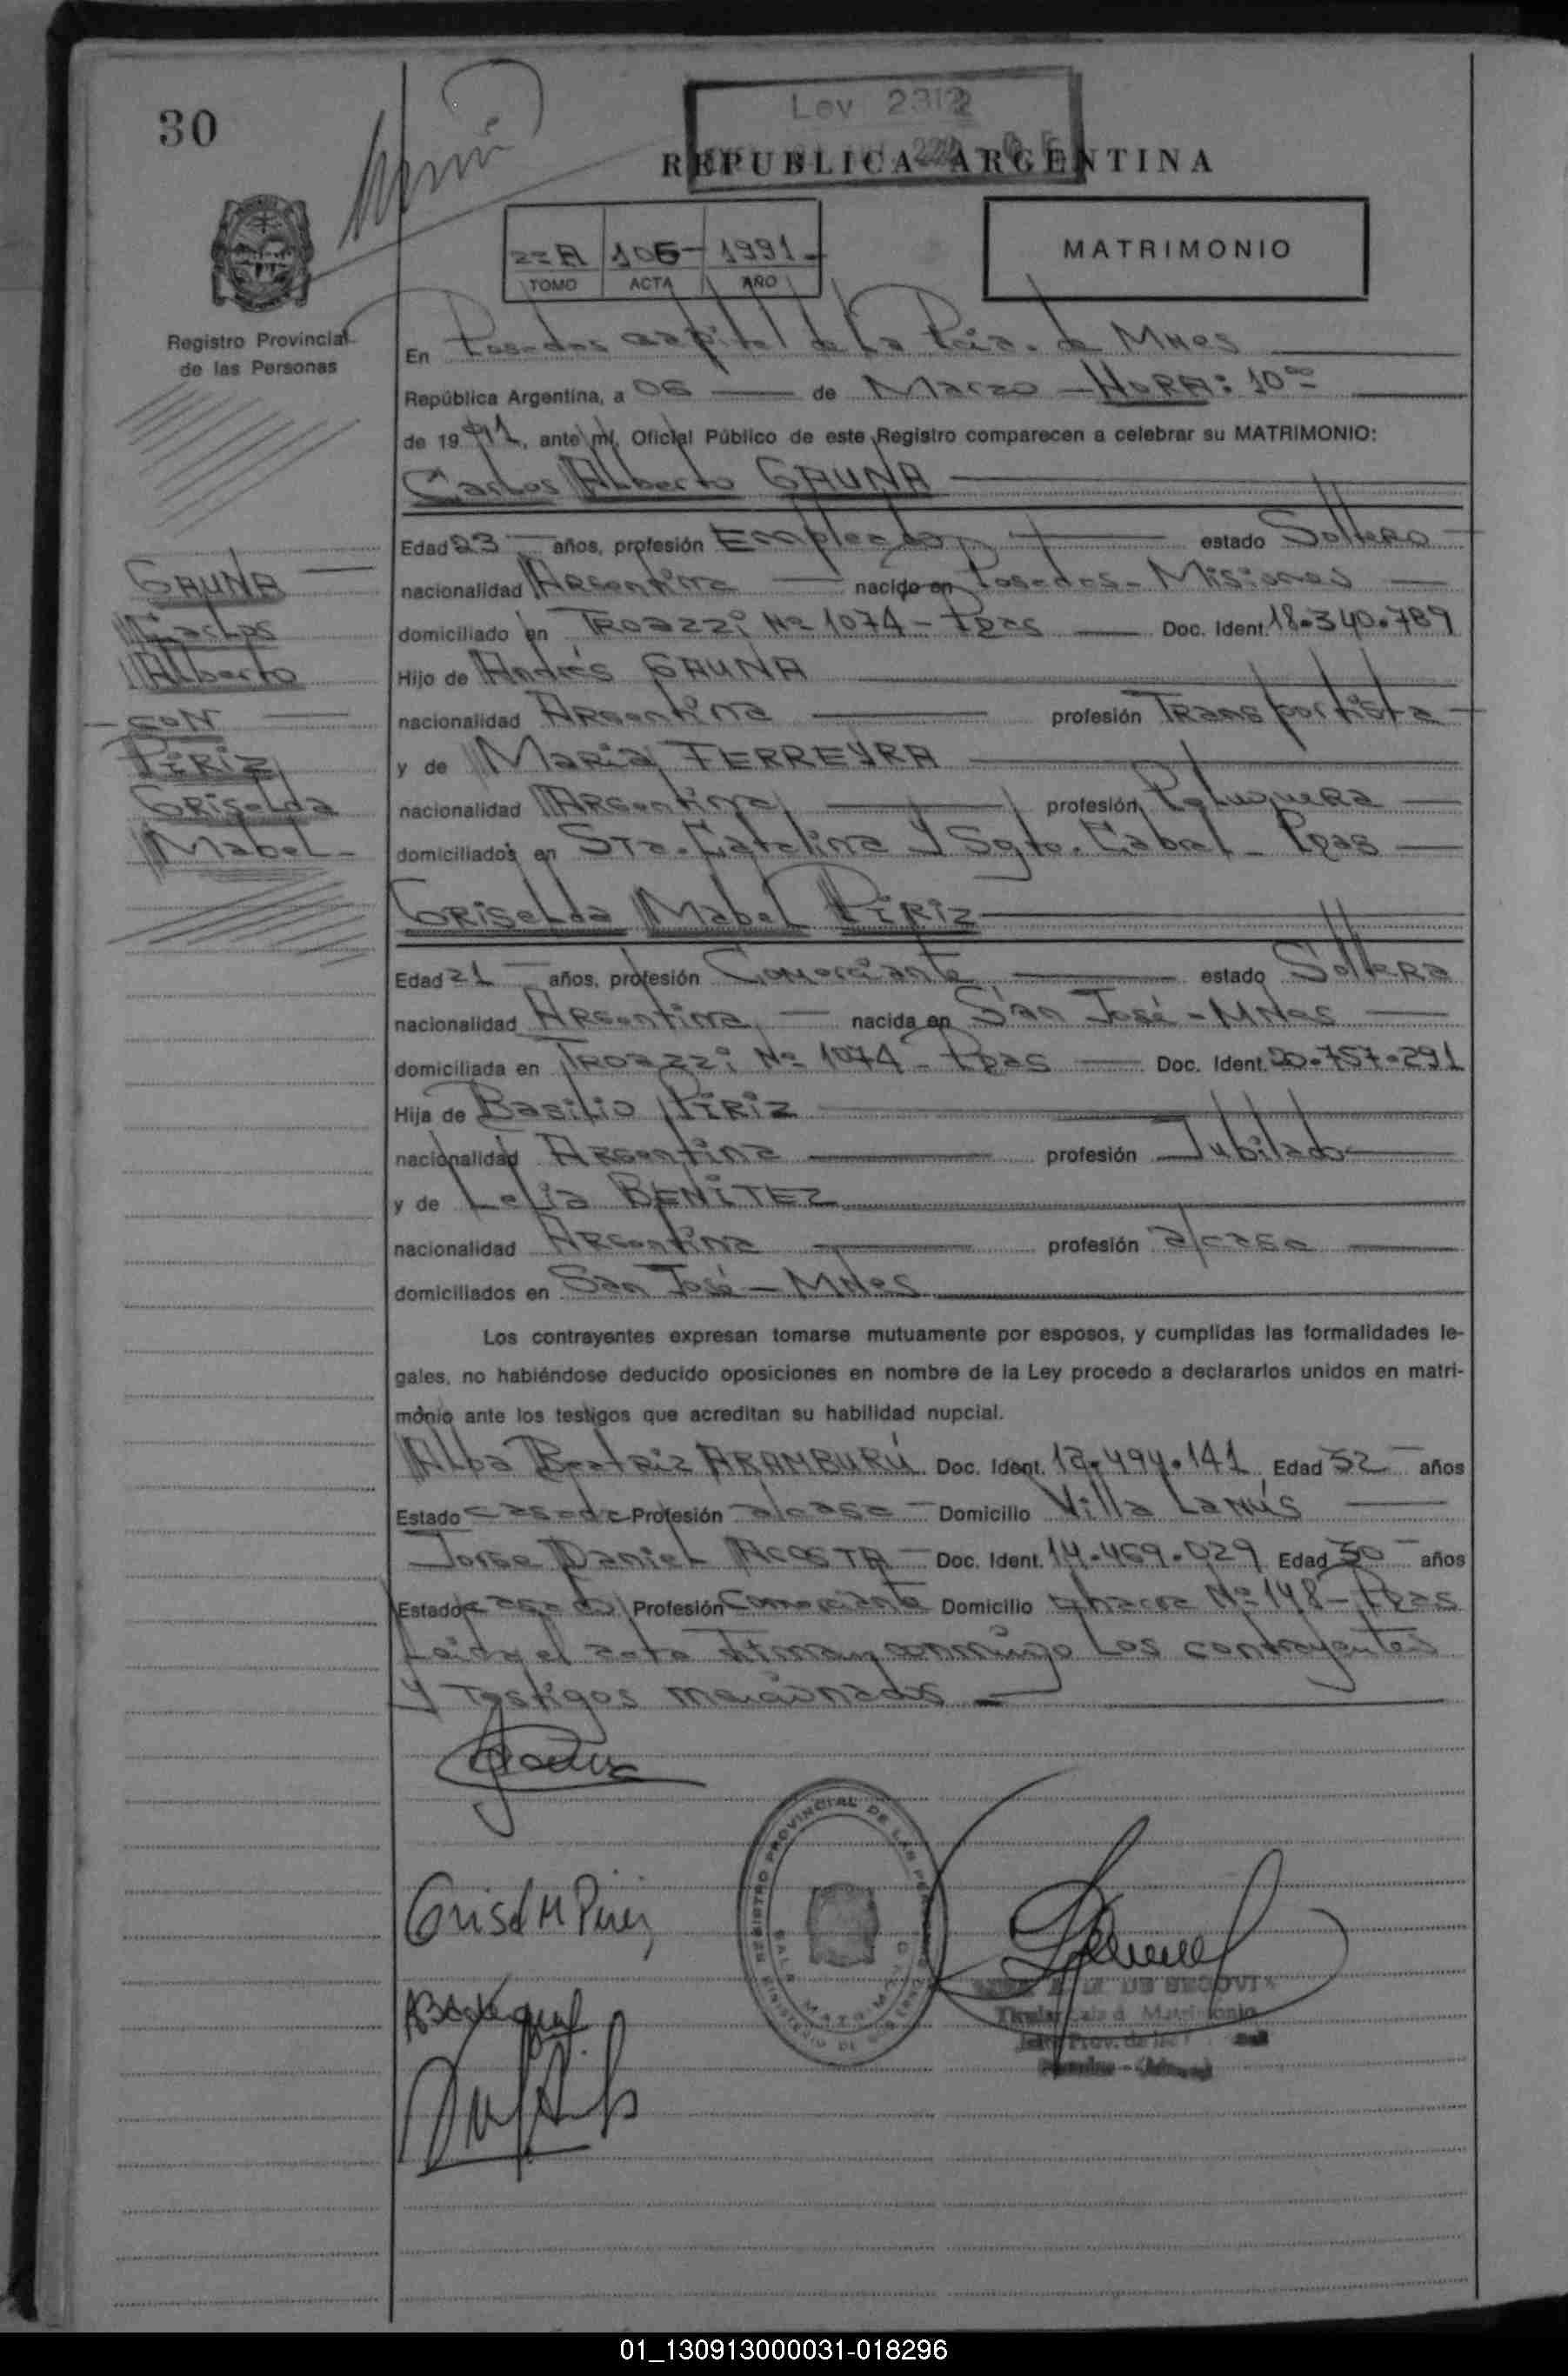 30
Ley 2312
REPUBLICA ARGENTINA
MATRIMONIO
22A 106- 1991.-
TOMO ACTA AÑO
Registro Provincial
de las Personas
En Posadas capital de la Pcia. de MNes
República Argentina, a 06 de Marzo - HORA: 10
de 1991, ante mí, Oficial Público de este Registro comparecen a celebrar su MATRIMONIO:
Carlos Alberto GAUNA
Edad 23 años, profesión Empleado estado Soltero
nacionalidad Argentina nacido en Posadas - Misiones
domiciliado en Troazzi Nº 1074 - Pdas Doc. Ident. 18.340.789
Hijo de Andrés GAUNA
nacionalidad Argentina profesión Transportista
y de Maria FERREYRA
nacionalidad Argentina profesión Peluquera
domiciliados en Sta. Catalina y Sgto. Cabral - Pdas
GAUNA
Carlos
Alberto
- CON
PIRIZ
Griselda
Mabel -
Griselda Mabel PIRIZ
Edad 21 años, profesión Comerciante estado Soltera
nacionalidad Argentina nacida en San José - MNes
domiciliada en Troazzi Nº 1074 - Pdas Doc. Ident. 20.757.291
Hija de Basilio PIRIZ
nacionalidad Argentina profesión Jubilado
y de Lelia BENITEZ
nacionalidad Argentina profesión a/casa
domiciliados en San José - MNes
Los contrayentes expresan tomarse mutuamente por esposos, y cumplidas las formalidades le-
gales, no habiéndose deducido oposiciones en nombre de la Ley procedo a declararlos unidos en matri-
monio ante los testigos que acreditan su habilidad nupcial.
Alba Beatriz ARAMBURÚ Doc. Ident. 12.494.141 Edad 32 años
Estado casada Profesión a/casa Domicilio Villa Lanús
Jorge Daniel ACOSTA Doc. Ident. 14.469.029 Edad 30 años
Estado casado Profesión Comerciante Domicilio Chacra Nº 148 - Pdas
Leida el acta firman conmigo los contrayentes
y testigos mencionados -
Grisel M Piriz
REGISTRO PROVINCIAL DE LAS PERSONAS
MINISTERIO DE GOBIERNO
DE SEGOVIA
Titular Sala d. Matrimonio
01_130913000031-018296